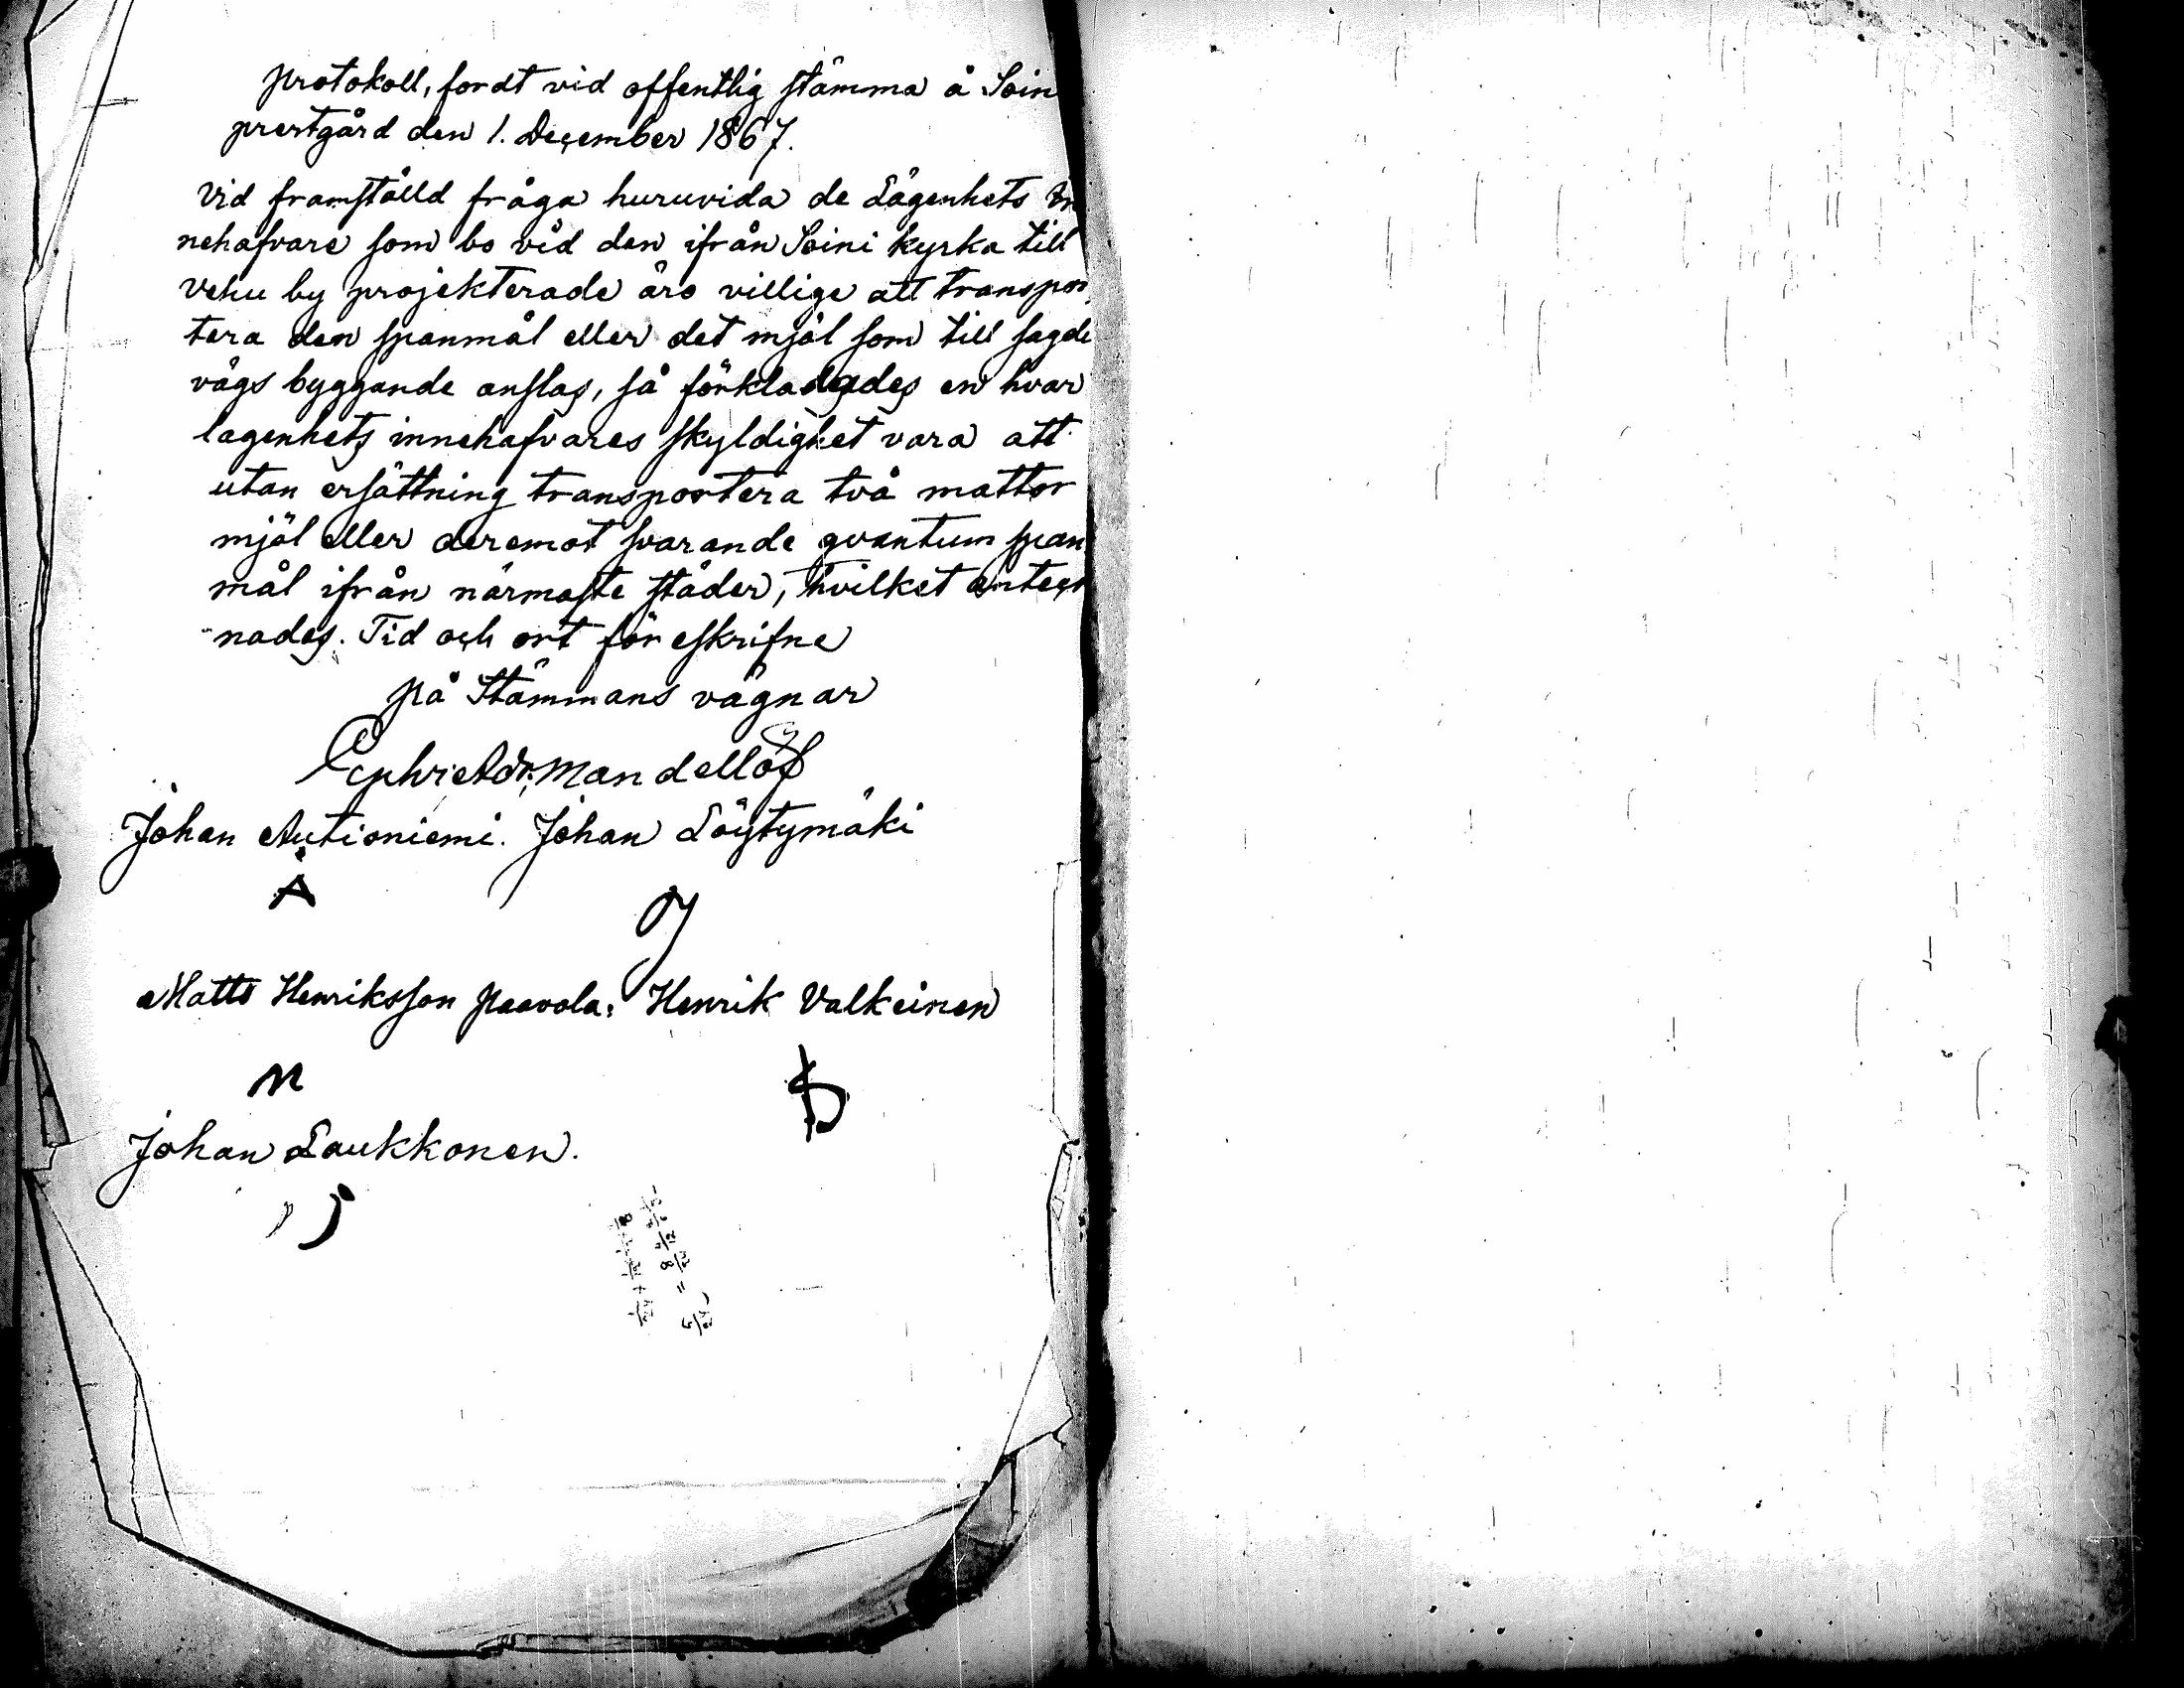 protokoll, fördt vid offentlig stämma å Soin
prestgård den 1. December 1867.
Vid framställd fråga huruvida de Lägenhets In
nehafvare som bo vid den ifrån Soini kyrka till
vehu by projekterade äro villige att transpor
tera den spanmål eller det mjöl som till sagde
vägs byggande anslas, så förklarades en hvar
lägenhets innehafvares skyldighet vara att
utan ersättning transportera två mattor
mjöl eller deremot svarande qvantum span
mål ifrån närmaste städer, hvilket anteck
nades. Tid och ort för eskrifne
på Stämmans vägnar
Mandellöf
Johan Autioniemi. Johan Löytymäki
Matts Henriksson Paavola. Henrik Valkeinen
Johan Laukkonen.